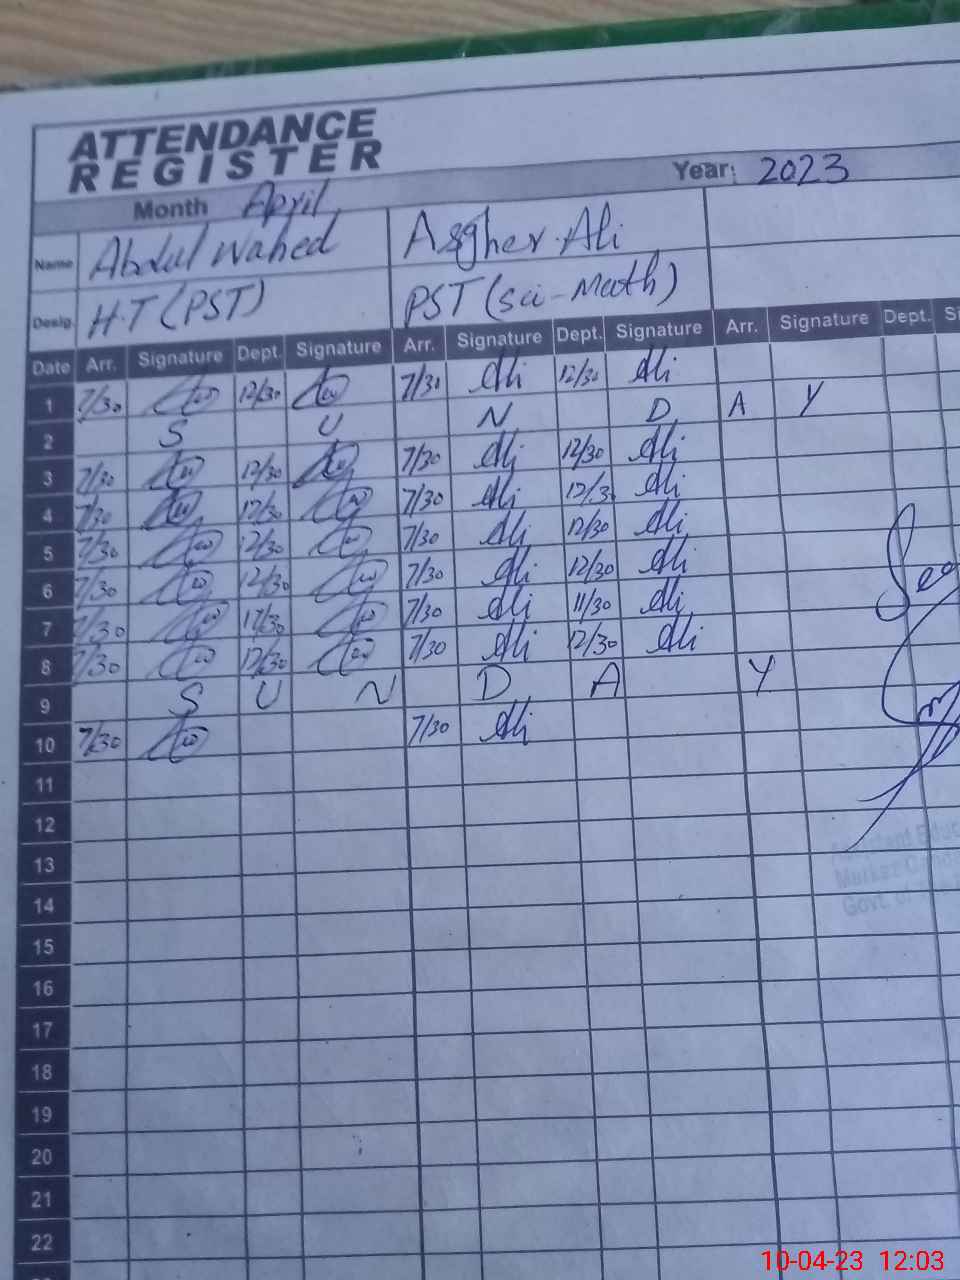 ATTENDANCE
REGISTER
Month April Year: 2023
Name Abdul Wahed Asgher Ali
Desig. H.T (PST) PST (sci-Math)
Date Arr. Signature Dept. Signature Arr. Signature Dept. Signature Arr. Signature Dept. Si
1 7/30 12/30 7/30 Ali 12/30 Ali
2 S U N D A Y
3 7/30 12/30 7/30 Ali 12/30 Ali
4 7/30 12/30 7/30 Ali 12/3 Ali
5 7/30 12/30 7/30 Ali 12/30 Ali
6 7/30 12/30 7/30 Ali 12/30 Ali
7 7/30 11/30 7/30 Ali 11/30 Ali
8 7/30 12/30 7/30 Ali 12/30 Ali
9 S U N D A Y
10 7/30 7/30 Ali
11
12
13
14
15
16
17
18
19
20
21
22
See
Assistant Educ
Markaz
Govt.
10-04-23 12:03